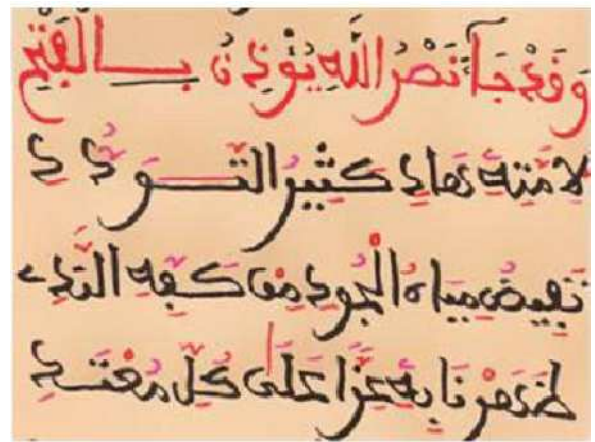 وَقَدْ جَآءَ نَصْرُ اللَّهِ يُؤْذِنُ بِالْفَتْحِ
لِأُمَّتِهِ هَادٍ كَثِيرُ التَّوَدُّدِ
تَفِيضُ مِيَاهُ الْجُودِ مِن كَفِّهِ النَّدِي
ظَفِرْنَا بِهِ عِزًّا عَلَى كُلِّ مُعْتَدِ